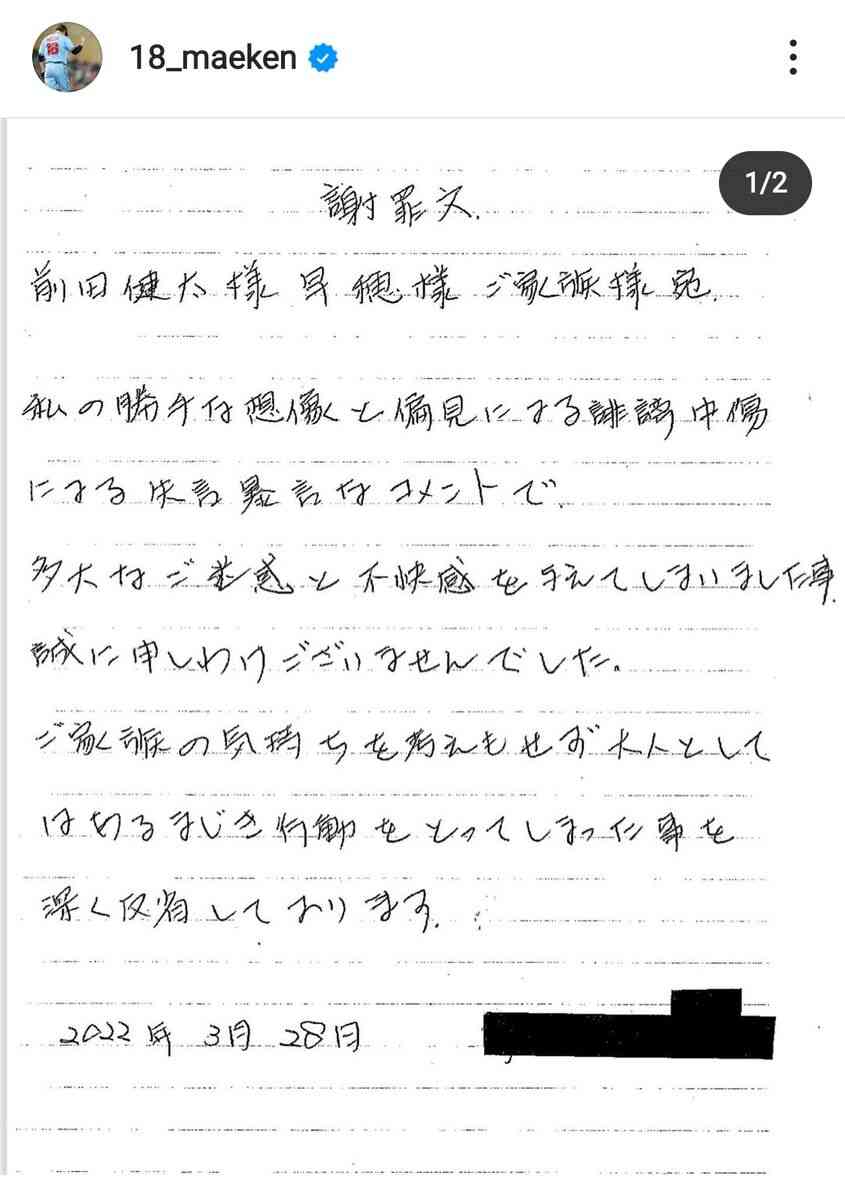 18_maeken
1/2
謝罪文.
前田健太様 早穂様 ご家族様 宛.
私の勝手な想像と偏見による誹謗中傷
による失言暴言なコメントで
多大なご迷惑と不快感を与えてしまいました事
誠に申しわけございませんでした。
ご家族の気持ちを考えもせず大人として
はあるまじき行動をとってしまった事を
深く反省しております.
2022年 3月 28日